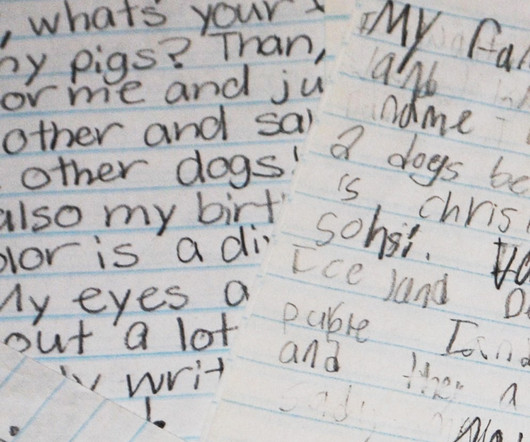 , whats your
ny pigs? Than,
or me and ju
other and sa
other dogs!
also my birt
olor is a di
My eyes a
out a lot
writ
My fa
name
2 dogs be
is chris
sohsi.
Iceland
puble
and then a